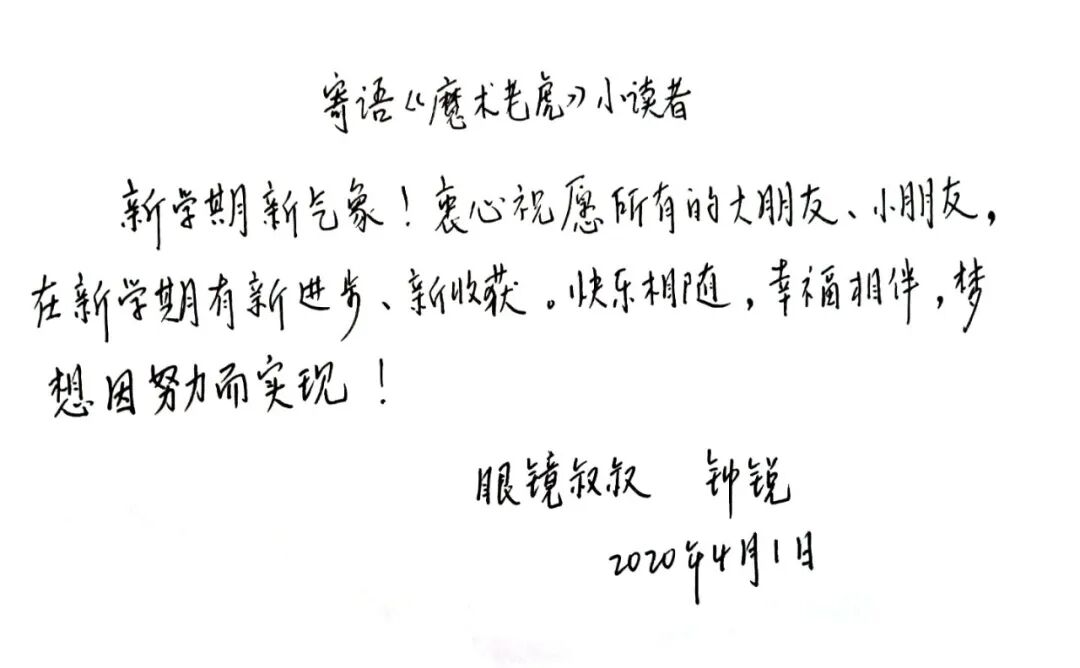 寄语《魔术老虎》小读者
新学期新气象！衷心祝愿所有的大朋友、小朋友，
在新学期有新进步、新收获。快乐相随，幸福相伴，梦
想因努力而实现！
眼镜叔叔 钟锐
2020年4月1日